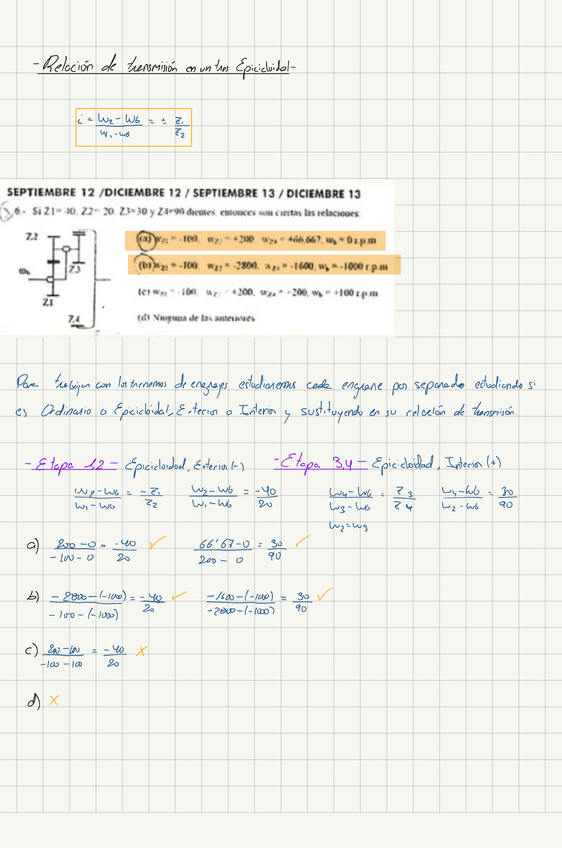 - Relación de transmisión en un tren Epicicloidal -
i = (w2 - w6)/(w1 - w6) = ± Z1/Z2
SEPTIEMBRE 12 /DICIEMBRE 12 / SEPTIEMBRE 13 / DICIEMBRE 13
6.- Si Z1= 40, Z2= 20, Z3=30 y Z4=90 dientes, entonces son ciertas las relaciones:
Z2
Z3
Z1
Z4
(a) wZ1 = -100, wZ2 = +200, wZ4 = +66,667, wb = 0 r.p.m
(b) wZ1 = -100, wZ2 = -2800, wZ4 = -1600, wb = -1000 r.p.m
(c) wZ1 = -100, wZ2 = +200, wZ4 = -200, wb = +100 r.p.m
(d) Ninguna de las anteriores
Para trabajar con los de engrajes estudiaremos cada engrane por separado estudiando si
es Ordinario o Epicicloidal, Exterior o Interior y sustituyendo en su relación de transmisión.
- Etapa 1,2 - Epicicloidad, Exterior (-)
(w2 - w6)/(w1 - w6) = -Z1/Z2 (w2 - w6)/(w1 - w6) = -40/20
- Etapa 3,4 - Epicicloidad, Interior (+)
(w4 - w6)/(w3 - w6) = Z3/Z4 (w4 - w6)/(w2 - w6) = 30/90
w2 = w3
a) (200 - 0)/(-100 - 0) = -40/20 ✓ (66'67 - 0)/(200 - 0) = 30/90 ✓
b) (-2800 - (-1000))/(-100 - (-1000)) = -40/20 ✓ (-1600 - (-1000))/(-2800 - (-1000)) = 30/90 ✓
c) (200 - 100)/(-100 - 100) = -40/20 x
d) x